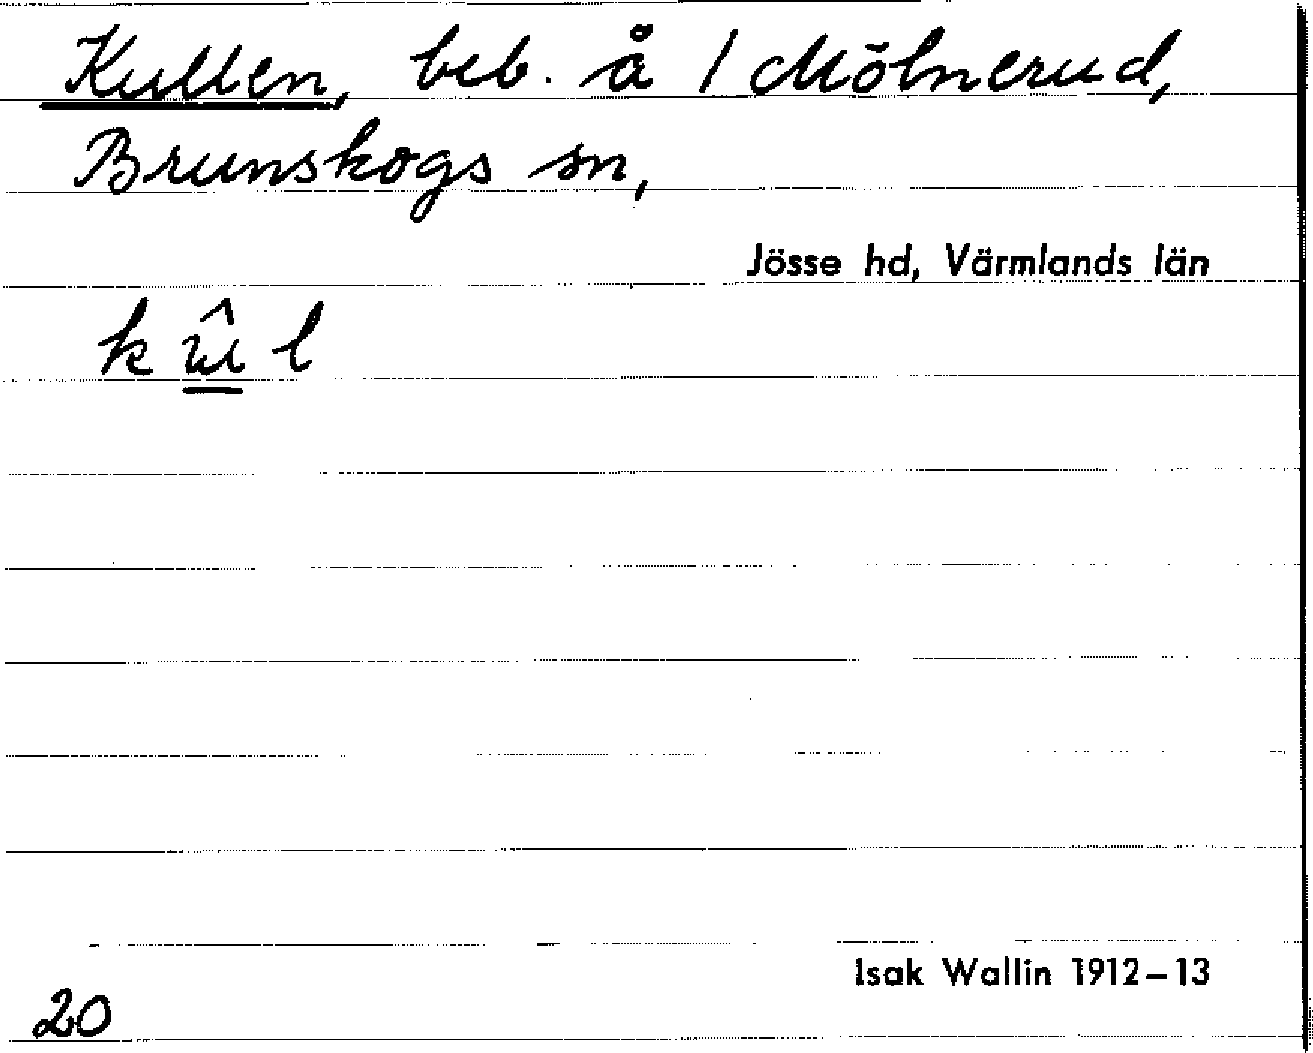 Kullen, beb. å 1 Mölnerud,
Brunskogs sn,
Jösse hd, Värmlands län
k û l
Isak Wallin 1912–13
20